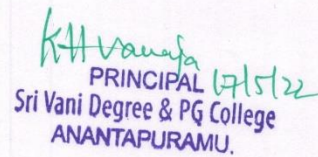 K H Vanaja
PRINCIPAL 17/5/22
Sri Vani Degree & PG College
ANANTAPURAMU.